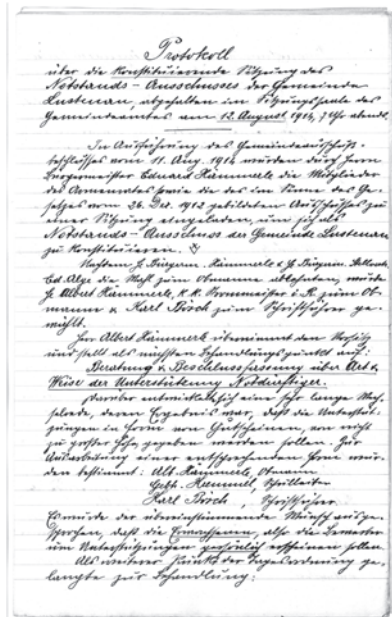 Protokoll
über die konstituierende Sitzung des
Notstands-Ausschusses der Gemeinde
Lustenau, abgehalten im Sitzungssaale des
Gemeindeamtes am 12. August 1914, 7 Uhr abends.
In Ausführung des Gemeindeausschuß-
beschlusses vom 11. Aug. 1914 wurden durch Herrn
Bürgermeister Eduard Hämmerle die Mitglieder
des Armenrates sowie die des im Sinne des Ge-
setzes vom 26. Dez. 1912 gebildeten Ausschusses zu
einer Sitzung eingeladen, um sich als
Notstands-Ausschuss der Gemeinde Lustenau
zu konstituieren.
Nachdem H. Bürgerm. Hämmerle & H. Bürgerm. Stellvertr.
Ed. Alge die Wahl zum Obmanne ablehnten, wurde
H. Albert Hämmerle, k. k. i. R. zum Ob-
mann & Karl Bösch zum Schriftführer ge-
wählt.
Herr Albert Hämmerle übernimmt den Vorsitz
und stellt als nächsten Behandlungspunkt auf:
Beratung & Beschlussfassung über Art &
Weise der Unterstützung Notdürftiger.
Darüber entwickelt sich eine sehr lange Wech-
selrede, deren Ergebnis war, daß die Unterstüt-
zungen in Form von Gutscheinen, von nicht
zu großer Höhe, gegeben werden sollen. Zur
Ausarbeitung einer entsprechenden Form wur-
den bestimmt: Alb. Hämmerle, Obmann
Gebh. Hämmerle, Schulleiter
Karl Bösch, Schriftführer
Es wurde der übereinstimmende Wunsch ausge-
sprochen, daß die Erwachsenen, also die Bewerber
um Unterstützungen persönlich erscheinen sollen.
Als weiterer Punkt der Tagesordnung ge-
langte zur Behandlung: